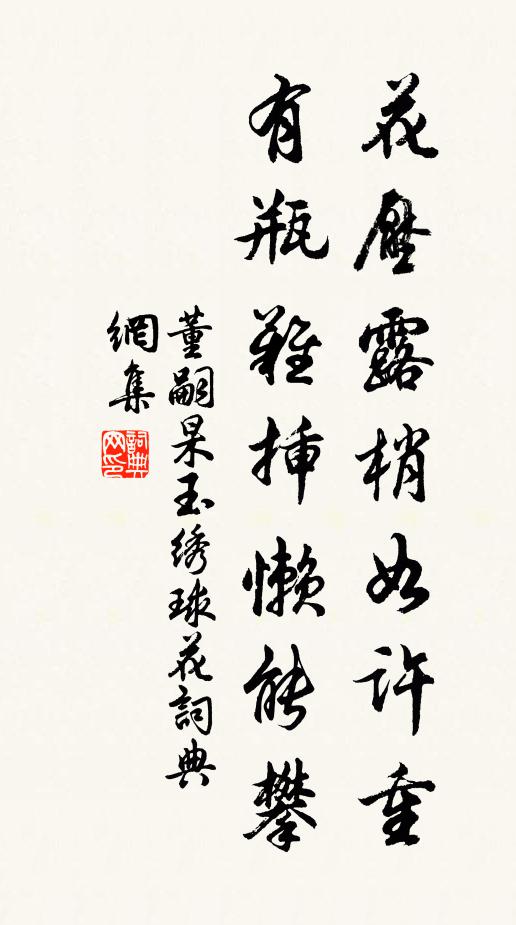 花壓露梢如許重
有瓶難插懶能攀
董嗣杲玉绣球花詞典
網集
詞典
网印